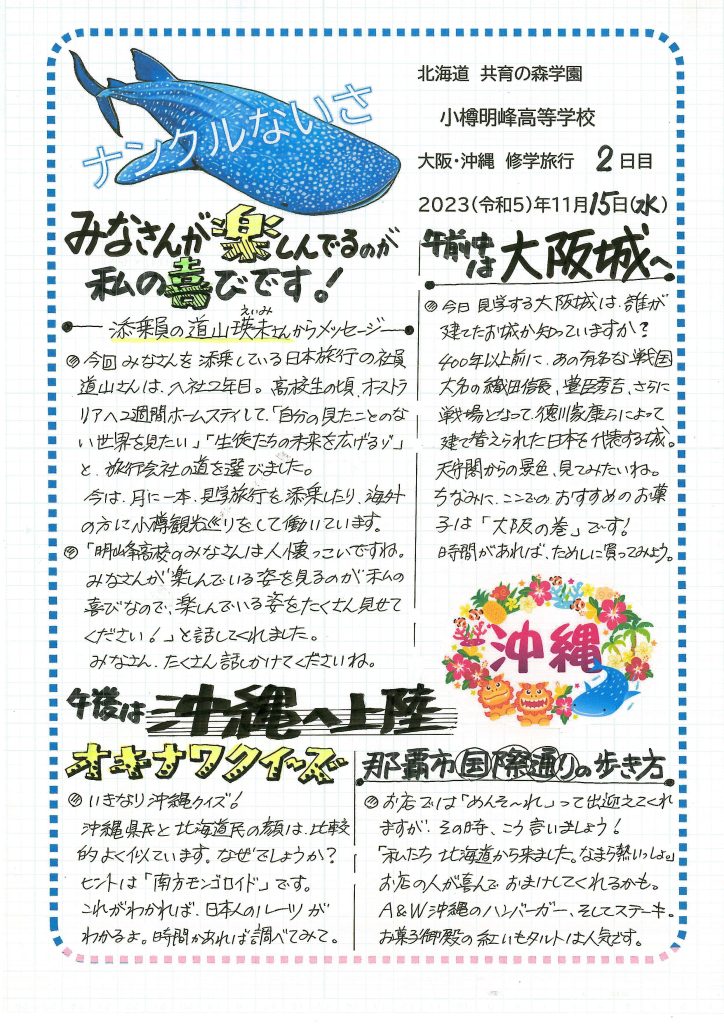 ナンクルないさ
北海道 共育の森学園
小樽明峰高等学校
大阪・沖縄 修学旅行 2日目
2023(令和5)年11月15日(水)
みなさんが楽しんでるのが
私の喜びです!
添乗員の道山瑛未さんからメッセージ
えいみ
今回みなさんを添乗している日本旅行の社員
道山さんは、入社2年目。高校生の頃、オストラ
リアへ2週間ホームスティして、「自分の見たことのな
い世界を見たい」「生徒たちの未来を広げるゾ」
と、旅行会社の道を選びました。
今は、月に一本、見学旅行を添乗したり、海外
の方に小樽観光巡りをして働いています。
「明峰高校のみなさんは人懐っこいですね。
みなさんが楽しんでいる姿を見るのが私の
喜びなので、楽しんでいる姿をたくさん見せて
ください!」と話してくれました。
みなさん、たくさん話しかけてくださいね。
午前中は大阪城へ
今日見学する大阪城は、誰が
建てたお城か知っていますか?
400年以上前に、あの有名な戦国
大名の織田信長、豊臣秀吉、さらに
戦場となって徳川家康らによって
建て替えられた日本を代表する城。
天守閣からの景色、見てみたいね。
ちなみに、ここでのおすすめのお菓
子は「大阪の巻」です!
時間があれば、ためしに買ってみよう。
沖縄
午後は沖縄へ上陸
オキナワクイーズ
いきなり沖縄クイズ!
沖縄県民と北海道民の顔は、比較
的よく似ています。なぜでしょうか?
ヒントは「南方モンゴロイド」です。
これがわかれば、日本人のルーツが
わかるよ。時間があれば調べてみて。
那覇市国際通りの歩き方
お店では「めんそ〜れ」って出迎えてくれ
ますが、その時、こう言いましょう!
「私たち北海道から来ました。なまら熱いっしょ。」
お店の人が喜んでおまけしてくれるかも。
A&W沖縄のハンバーガー、そしてステーキ。
お菓子御殿の紅いもタルトは人気です。